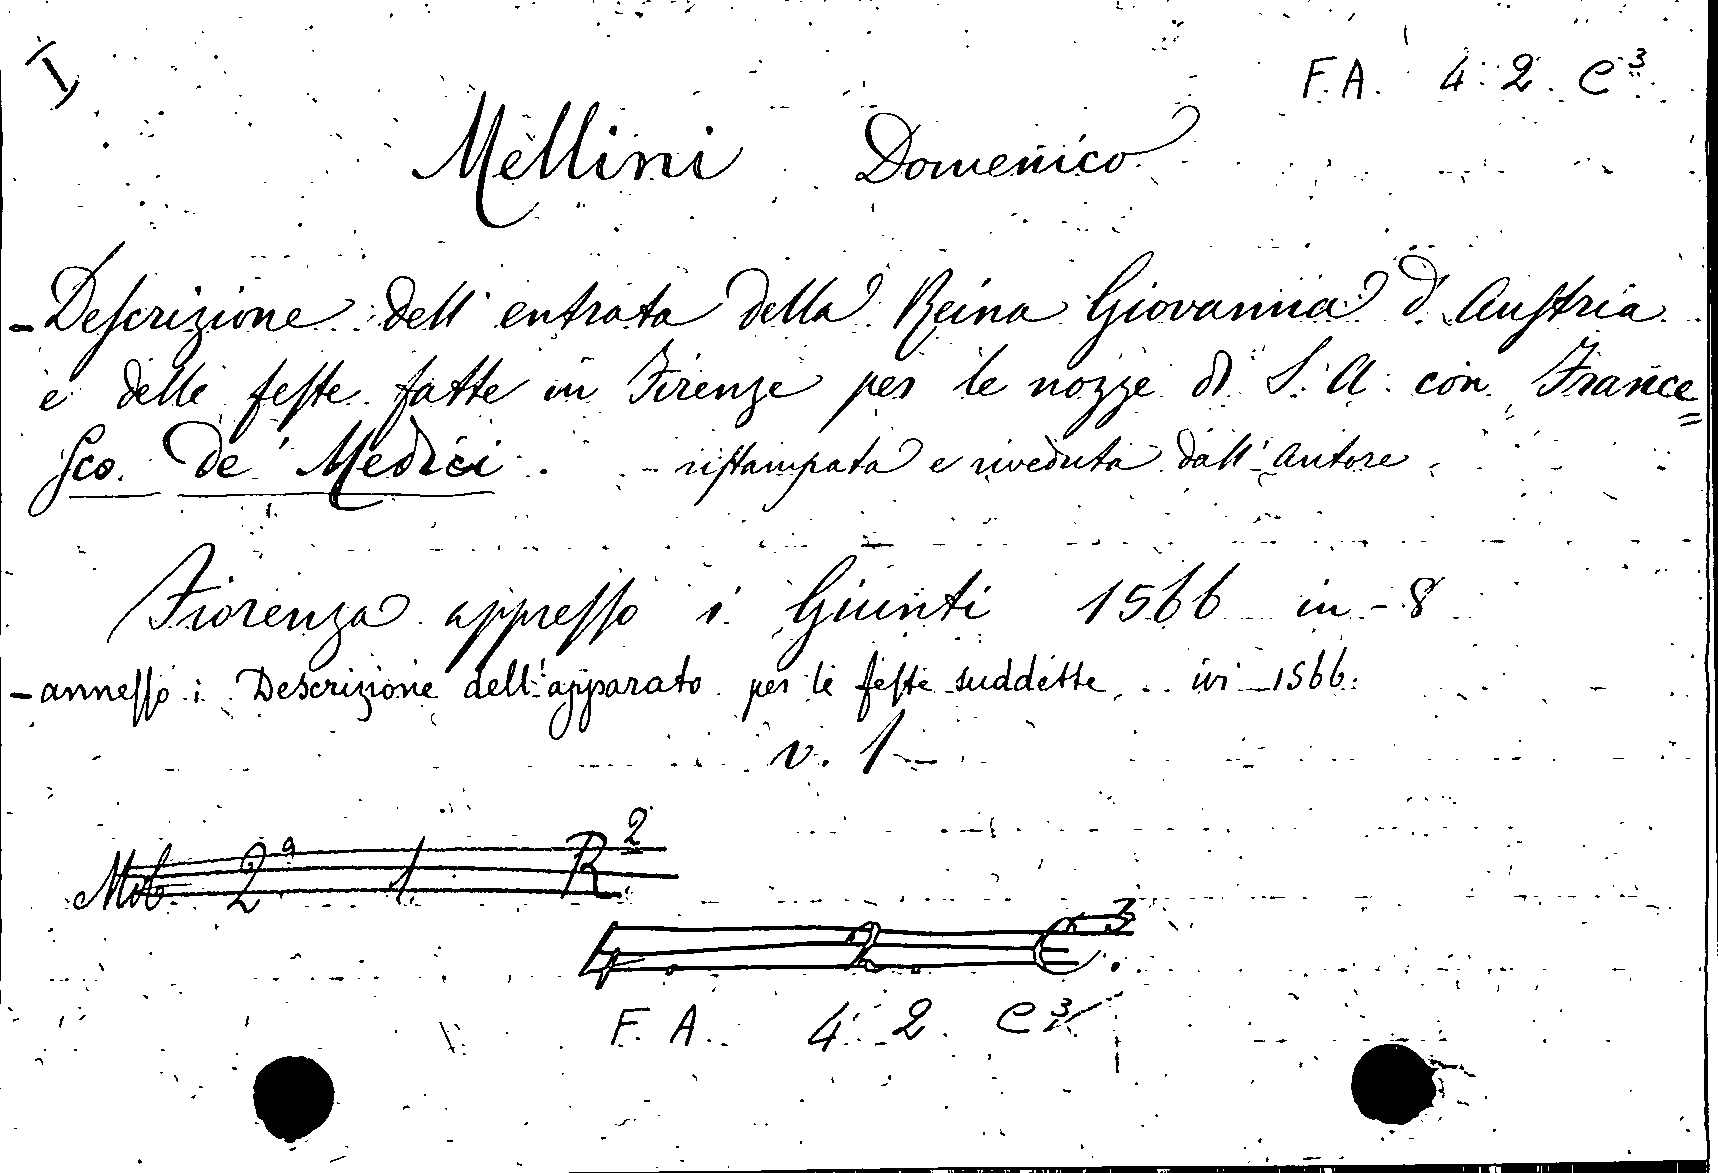 I
F. A. 4. 2. C³
Mellini Domenico
- Descrizione dell'entrata della Reina Giovanna d'Austria
e delle feste fatte in Firenze per le nozze di S. A. con France=
sco de' Medici. - ristampata e riveduta dall'autore
Fiorenza appresso i Giunti 1566 in-8
- annesso: Descrizione dell'apparato per le feste suddette. ivi 1566.
v. 1
Mob 2ª 1. R²
4. 2. C³.
F. A. 4. 2. C³